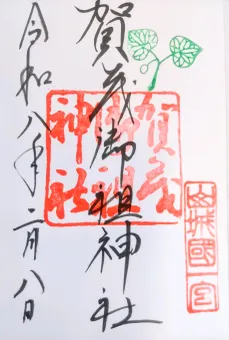 山城國一宮
賀茂御祖神社
賀茂御祖神社
令和八年二月八日